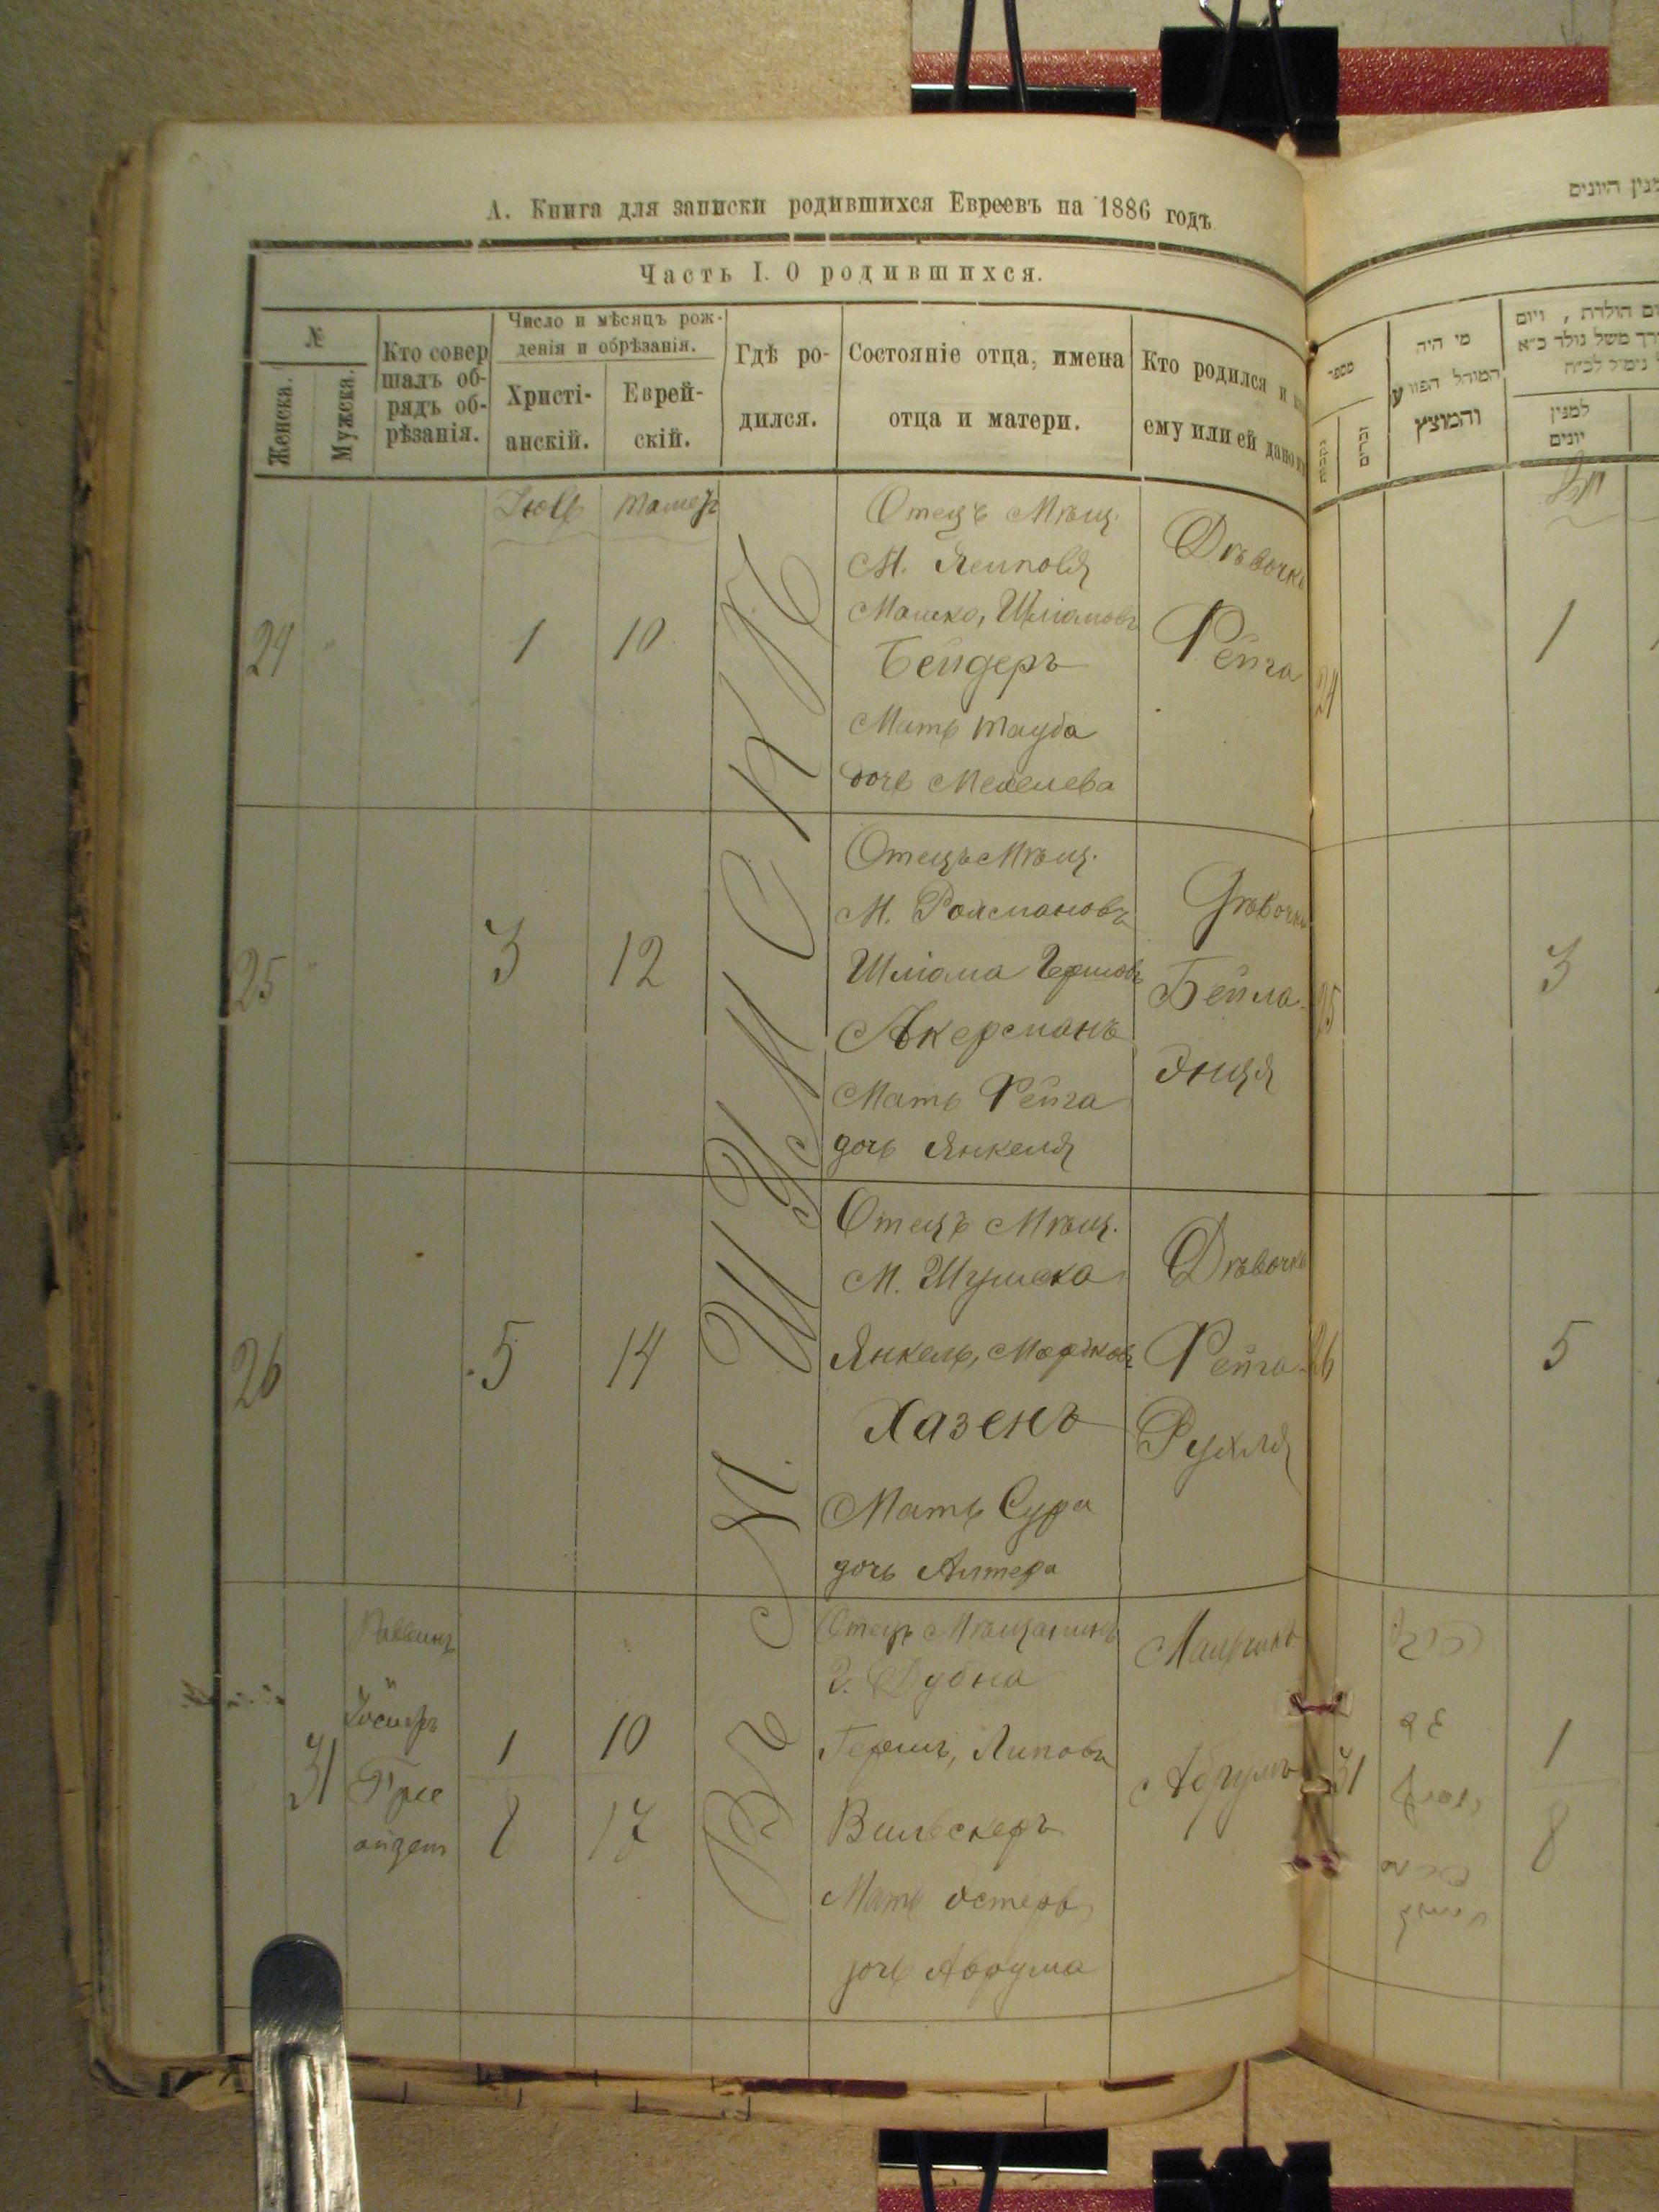 А. Книга для записки родившихся Евреевъ на 1886 годъ
Часть I. О родившихся.
№
Женска.
Мужска.
Кто совер
шалъ об-
рядъ об-
рѣзанія.
Число и мѣсяцъ рож-
денія и обрѣзанія.
Христі-
анскій.
Еврей-
скій.
Гдѣ ро-
дился.
Состояніе отца, имена
отца и матери.
Кто родился и
ему или ей дано
24
1
10
Отецъ Мѣщ.
Мошко, Шліомовъ
Бейдеръ
Мать Тауба
дочь Мехелева
Дѣвочка
Рейга
25
3
12
Отецъ Мѣщ.
М. Ройсмановъ
Шліома Гершовъ
Акерманъ
Мать Рейга
дочь Янкеля
Дѣвочка
Бейла
26
5
14
Отецъ Мѣщ.
М. Шумска
Янкель, Мордков
Хазенъ
Мать Сура
дочь Алтера
Дѣвочка
Рейга
Рухля
31
1
8
10
17
Отецъ Мѣщанинъ
г. Дубна
Гершъ, Липовъ
Вильскеръ
Мать Эстеръ
дочь Аврума
Мальчикъ
Абрумъ
Въ М. Шумскѣ
מספר
נקבות
זכרים
מי היה
המוהל הפורע
והמוצץ
למנין
יונים
24
1
25
3
26
5
31
1
8